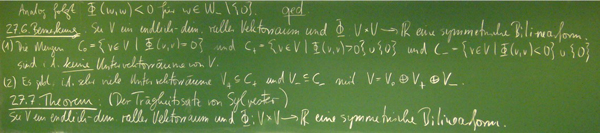 Analog folgt Φ(w,w) < 0 für w ∈ W_ \ {0}. qed
27.6. Bemerkung. Sei V ein endlich-dim. reeller Vektorraum und Φ: V×V → ℝ eine symmetrische Bilinearform.
(1) Die Mengen C₀ = {v∈V | Φ(v,v)=0} und C₊ = {v∈V | Φ(v,v)>0} ∪ {0} und C_ = {v∈V | Φ(v,v)<0} ∪ {0}
sind i.A. keine Untervektorräume von V.
(2) Es gibt i.A. sehr viele Untervektorräume V₊ ⊆ C₊ und V_ ⊆ C_ mit V = V₀ ⊕ V₊ ⊕ V_.
27.7. Theorem. (Der Trägheitssatz von Sylvester)
Sei V ein endlich-dim. reeller Vektorraum und Φ: V×V → ℝ eine symmetrische Bilinearform.